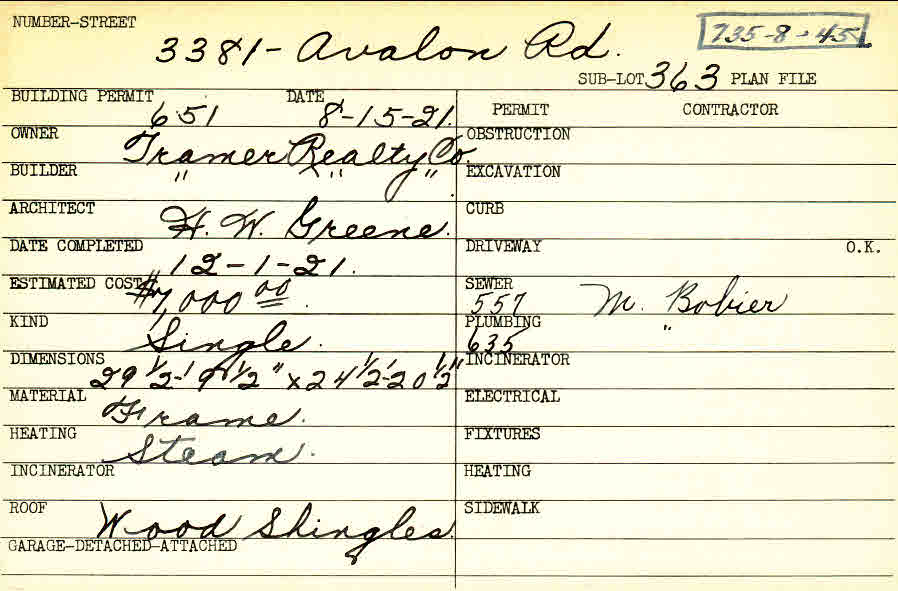 NUMBER-STREET 3381- Avalon Rd. 735-8-45
SUB-LOT 363 PLAN FILE
BUILDING PERMIT 651 DATE 8-15-21.
PERMIT CONTRACTOR
OWNER Tramer Realty Co.
OBSTRUCTION
BUILDER " " "
EXCAVATION
ARCHITECT H. W. Greene.
CURB
DATE COMPLETED 12-1-21.
DRIVEWAY O.K.
ESTIMATED COST $7,000 00
SEWER 557 M. Bobier
KIND Single.
PLUMBING 635 "
DIMENSIONS 29 1/2-19 1/2" x 24 1/2-20 1/2"
INCINERATOR
MATERIAL Frame.
ELECTRICAL
HEATING Steam.
FIXTURES
INCINERATOR
HEATING
ROOF Wood Shingles.
SIDEWALK
GARAGE-DETACHED-ATTACHED